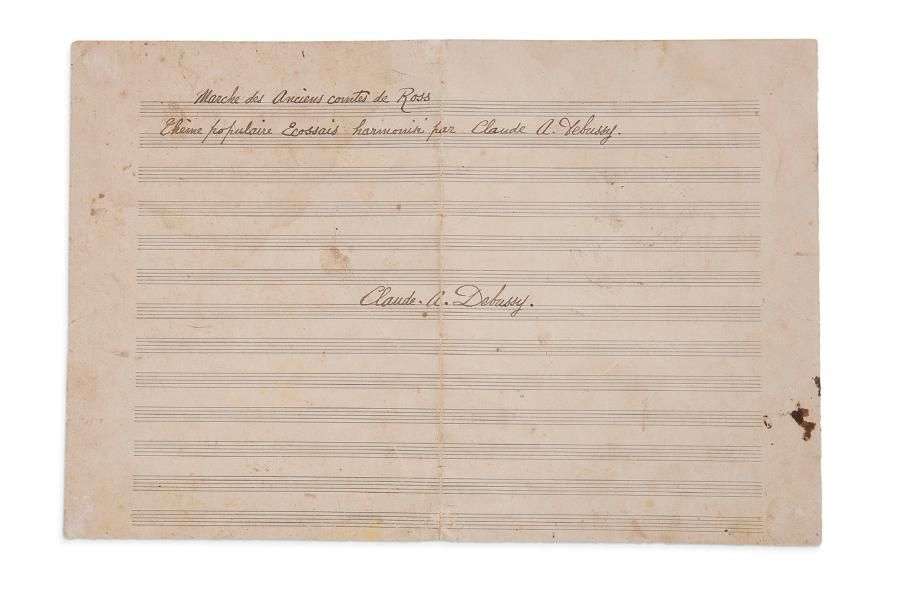 Marche des Anciens comtes de Ross
Thème populaire Ecossais harmonisé par Claude A. Debussy.
Claude. A. Debussy.